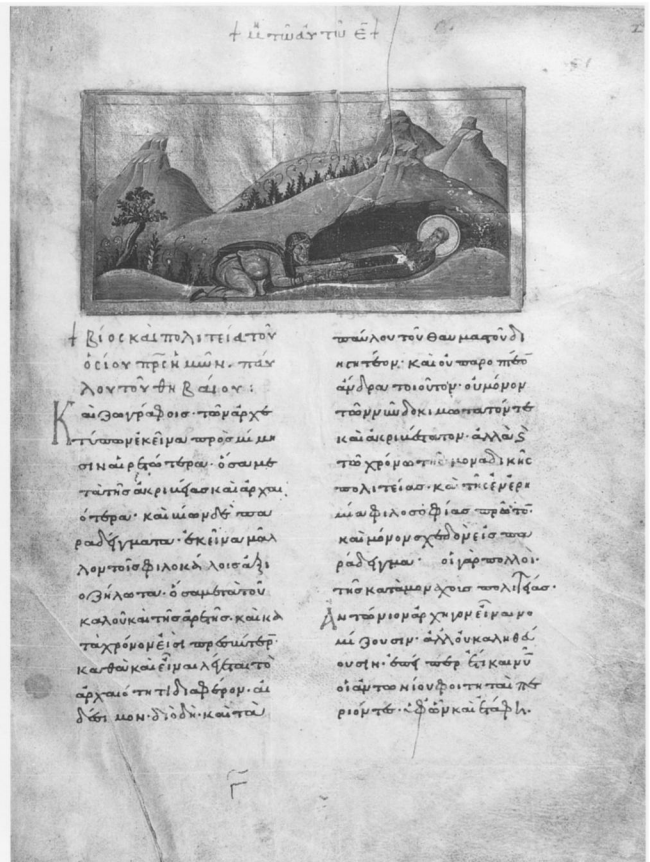 † μ τῶ αὐτῶ ε †
† βίος και πολιτεία τοῦ
ὁσίου πρς ἡμῶν· παύ
λου τοῦ θηβαίου :
Καὶ ζωγράφοις· τῶν ἀρχε
τύπων ἐκεῖνα πρὸς μίμη
σιν αἱρετώτερα· ὅσα με
τὰ τῆς ἀκριβείας καὶ ἀρχαι
ότερα· καὶ βίων δὲ πα
ραδείγματα· ἐκεῖνα μᾶλ
λον τοῖς φιλοκάλοις ἀξι
οζήλωτα· ὅσα μετὰ τοῦ
καλοῦ καὶ τῆς ἀρετῆς· καὶ κα
τὰ χρόνον εἰσὶ πρεσβύτερ
καθὰ καὶ εἶναι λέγεται τὸ
ἀρχαιότητι διαφέρον· αἰ
δέσιμον· διὸ δὴ· καὶ τὰ
παύλου τοῦ θαυμαστοῦ δι
ηγητέον· καὶ οὐ παροπτέον
ἄνδρα τοιοῦτον· οὐ μόνον
τῶν νῦν δοκιμώτατόν τε
καὶ ἀκριβέστατον· ἀλλὰ ϛ
τῶ χρόνω τῆς μοναδικῆς
πολιτείας· κα τῆς ἐν ἐρη
μία φιλοσοφίας πρῶτον·
καὶ μόνον σχεδὸν εἰς πα
ράδειγμα· οἱ γὰρ πολλοὶ·
τῆς κατὰ μοναχοὺς πολιτείας·
Ἀντώνιον ἀρχηγὸν εἶναι νο
μίζουσιν· ἀλλ' οὐκ ἀληθεύ
ουσιν· ἐπείπερ ἔτι καὶ νῦν
οἱ ἀντωνίου φοιτηταὶ πε
ριόντες·